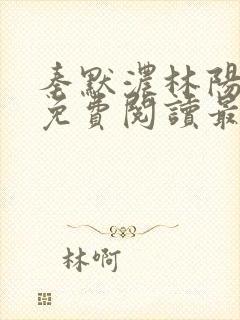 秦默濃林陽
免費閱讀最
林啊